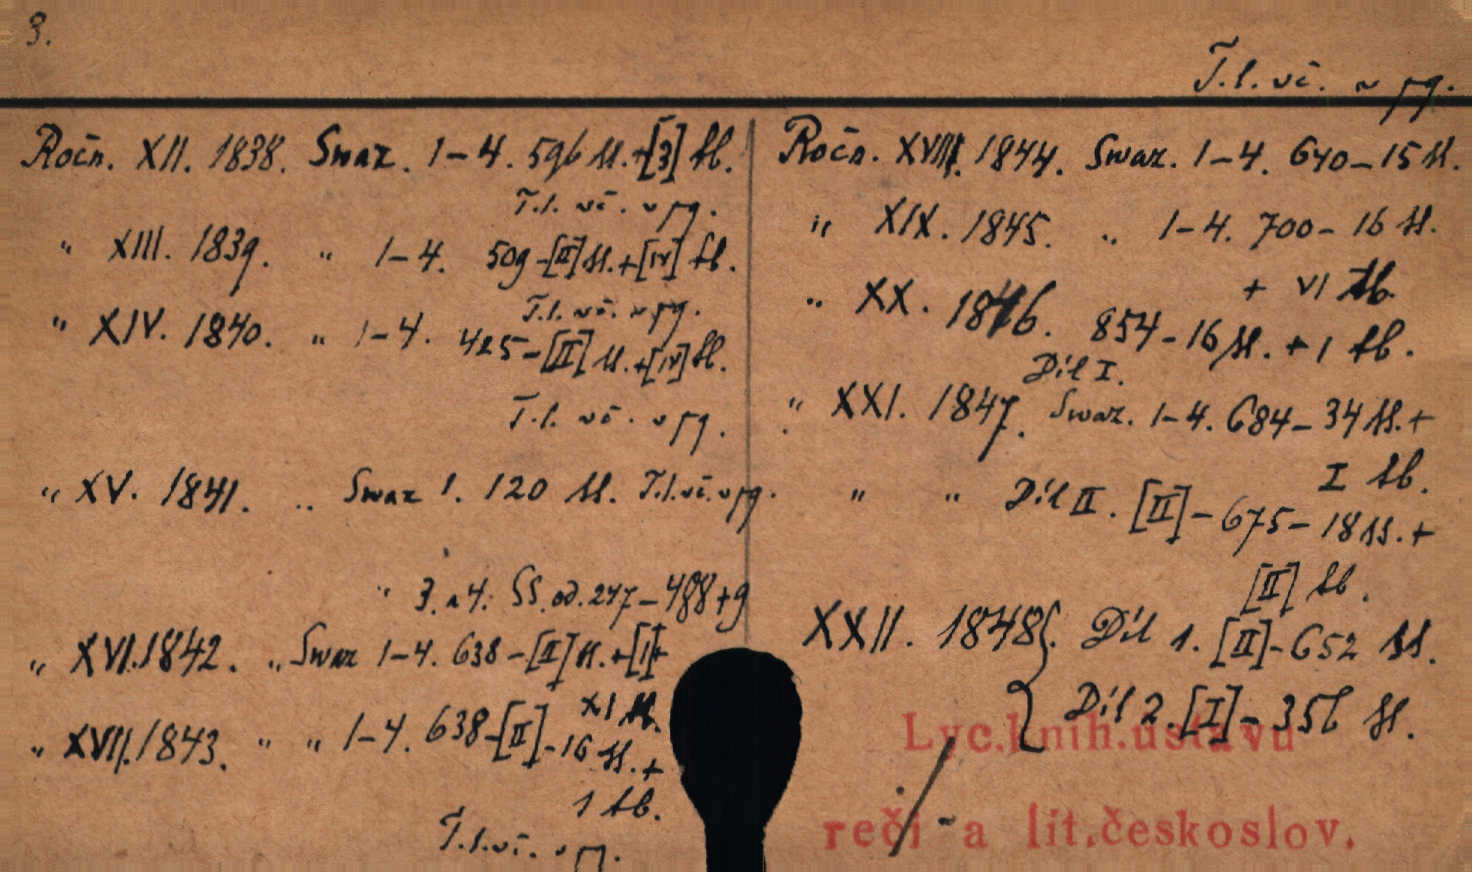 3.
T.l. vč. v pg.
Ročn. XII. 1838. Swaz. 1-4. 596 ss.+[3] tb.
T.l. vč. v pg.
" XIII. 1839. " 1-4. 509-[II] ss.+[IV] tb.
T.l. vč. v pg.
" XIV. 1840. " 1-4. 425-[II] ss.+[IV] tb.
T.l. vč. v pg.
" XV. 1841. " Swaz 1. 120 ss. T.l. vč. v pg.
" 3. a 4. SS. od. 247-488+9
" XVI. 1842. " Swaz 1-4. 638-[II] ss.+[1]+
XI tb.
" XVII. 1843. " " 1-4. 638-[II]-16 ss.+
1 tb.
T.l. vč. v pg.
Ročn. XVIII. 1844. Swaz. 1-4. 640-15 ss.
" XIX. 1845. " 1-4. 700-16 ss.
+ VI tb.
" XX. 1846. 854-16 ss.+1 tb.
Díl I.
" XXI. 1847. Swaz. 1-4. 684-34 ss.+
I tb.
" " Díl II. [II]-675-18 ss.+
[II] tb.
XXII. 1848. Díl 1. [II]-652 ss.
Díl 2. [I]-356 ss.
Lyc.knih.ústavu
reči a lit.českoslov.